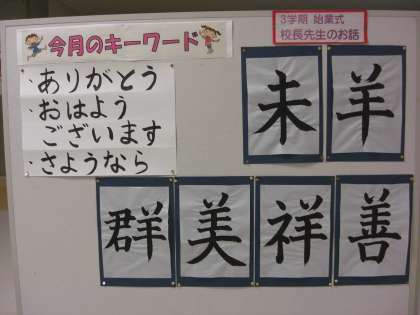 今月のキーワード
・ありがとう
・おはよう
ございます
・さようなら
3学期 始業式
校長先生のお話
未 羊
群 美 祥 善